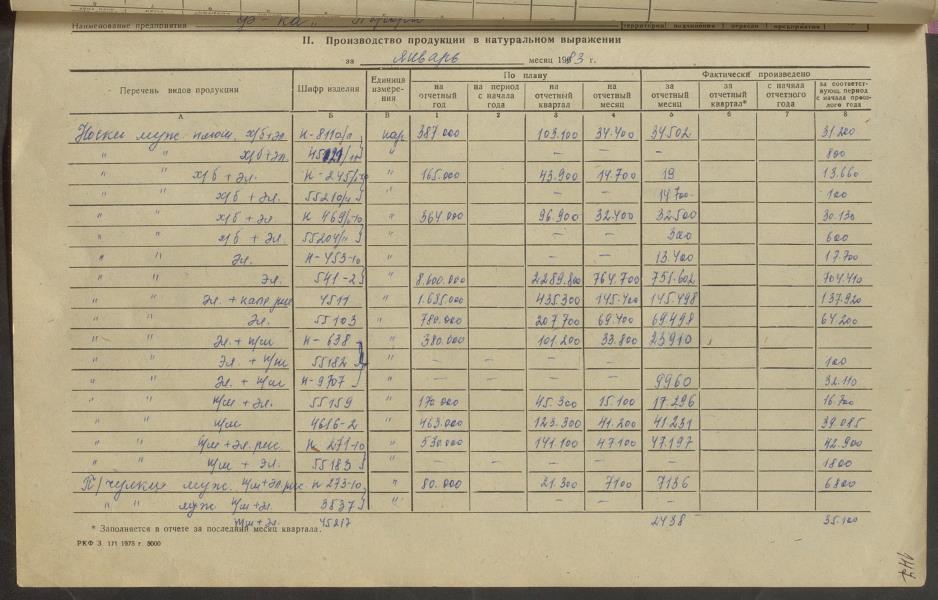 Наименование предприятия ф-ка
территория подчинения отрасли предприятия
II. Производство продукции в натуральном выражении
за январь месяц 1983 г.
Перечень видов продукции Шифр изделия Единица измере- ния По плану Фактически произведено
на отчетный год на период с начала года на отчетный квартал на отчетный месяц за отчетный месяц за отчетный квартал* с начала отчетного года за соответствующ. период с начала прошлого года
А Б В 1 2 3 4 5 6 7 8
Носки муж. х/б+эл. н-8110/ пар 387 000 103.100 34.400 34.502 31.200
" " х/б+эл. " — — - 800
" " х/б + эл. " 165.000 43.900 14.700 19 13.660
" " х/б + эл. " — — 14 700 100
" " х/б + эл. н 469/ " 364 000 96.900 32.400 32.500 30.130
" " х/б + эл. " — — 300 600
" " эл. н-453-10 " — — 13.400 17.700
" " эл. 541-2 8.600.000 2.289.800 764.700 751.602 704.410
" " эл. + капр. рис 4511 " 1.635.000 435.300 145.400 145.498 137.920
" " эл. 55103 " 780.000 207 700 69.400 69.498 64.200
" " эл. + п/ш н-638 " 380.000 101.200 33.800 23910
" " эл. + п/ш 55182 " — — — — 100
" " эл. + п/ш н-9707 " — — — — 9960 32.110
" " п/ш + эл. 55159 " 170 000 45.300 15.100 17.296 16.700
" " п/ш 4616-2 " 463.000 123.300 41.200 41231 39.085
" " п/ш + эл. рис. н 271-10 " 530.000 141.100 47.100 47.197 42.900
" " п/ш + эл. 55183 " — — — — — 1800
П/чулки муж. п/ш+эл. рис н 273-10 " 80.000 21.300 7100 7136 6800
" " муж п/ш+эл. 3837 " — —
п/ш+эл. 45217 2438 35.100
* Заполняется в отчете за последний месяц квартала.
РКФ З. 171 1975 г. 3000